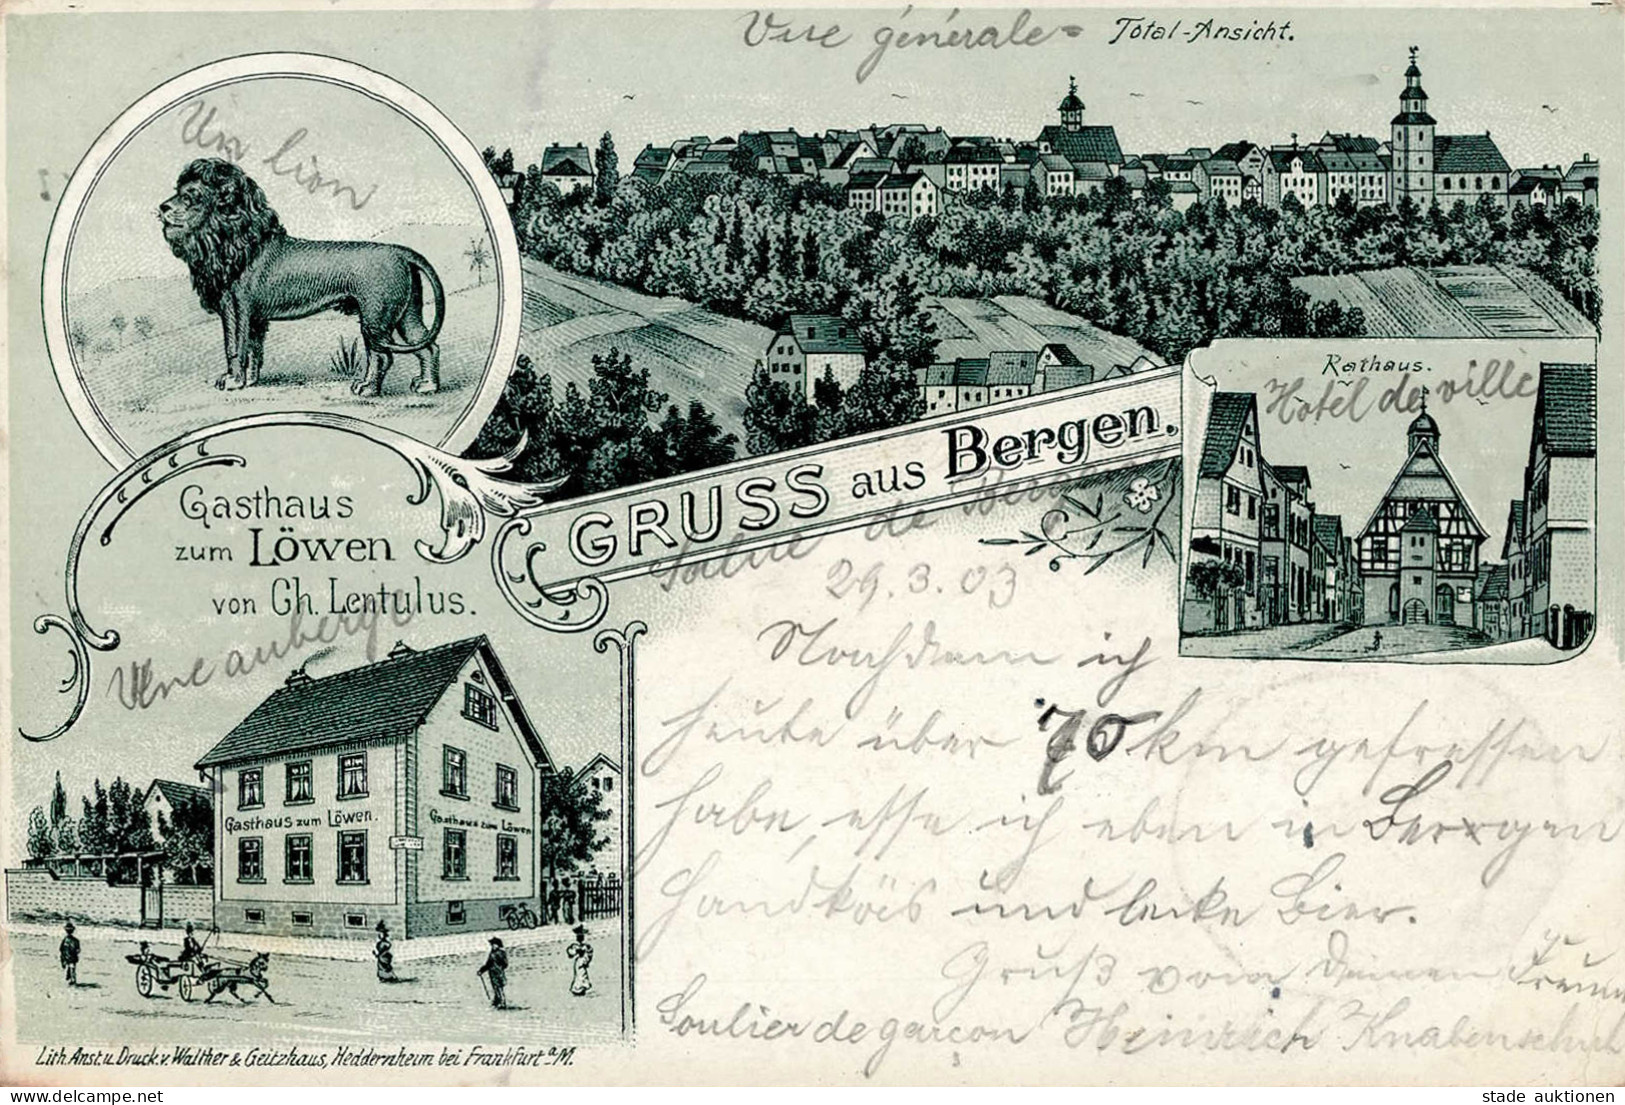 Vue générale = Total-Ansicht.
Un lion
Rathaus.
Hotel de ville
GRUSS aus Bergen.
Salue de Bergen
Gasthaus
zum Löwen
von Ch. Lentulus.
Une auberge
Gasthaus zum Löwen.
Gasthaus zum Löwen
29.3.03
Nachdem ich
heute über 70 km gefressen
habe, esse ich eben in Bergen
Handkäs und lecke Bier.
Gruß von Deinem Freund
Soulier de garçon Heinrich Knabenschuh
Lith. Anst. u. Druck. v. Walther & Geitzhaus, Heddernheim bei Frankfurt a/M.
stade auktionen
www.delcampe.net